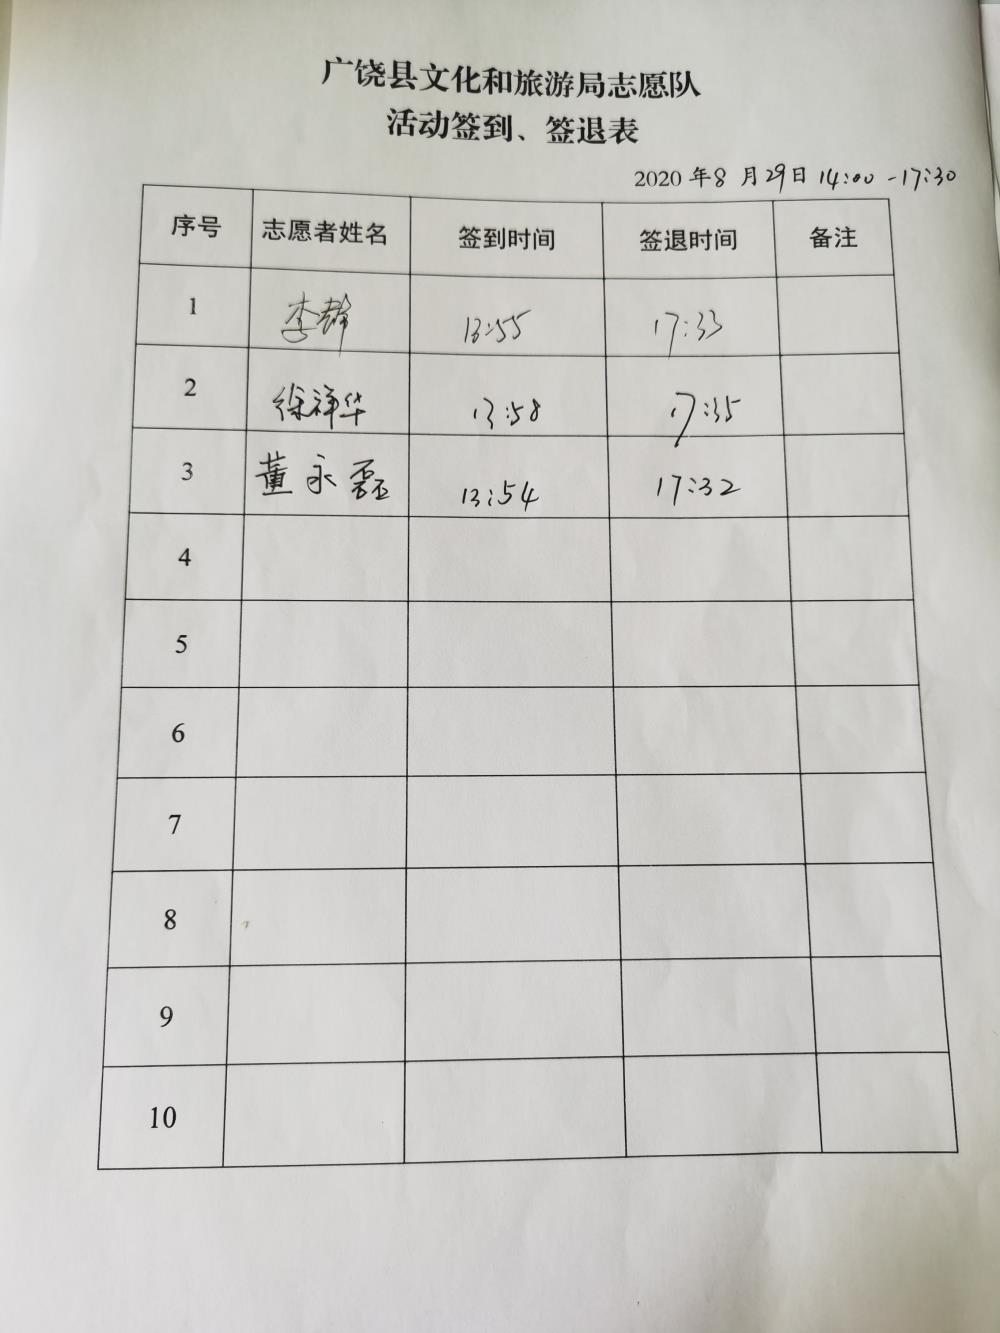 广饶县文化和旅游局志愿队
活动签到、签退表
2020 年8 月29日 14:00 -17:30
序号 志愿者姓名 签到时间 签退时间 备注
1 李静 13:55 17:33
2 徐祥华 13:58 17:35
3 董永磊 13:54 17:32
4
5
6
7
8
9
10